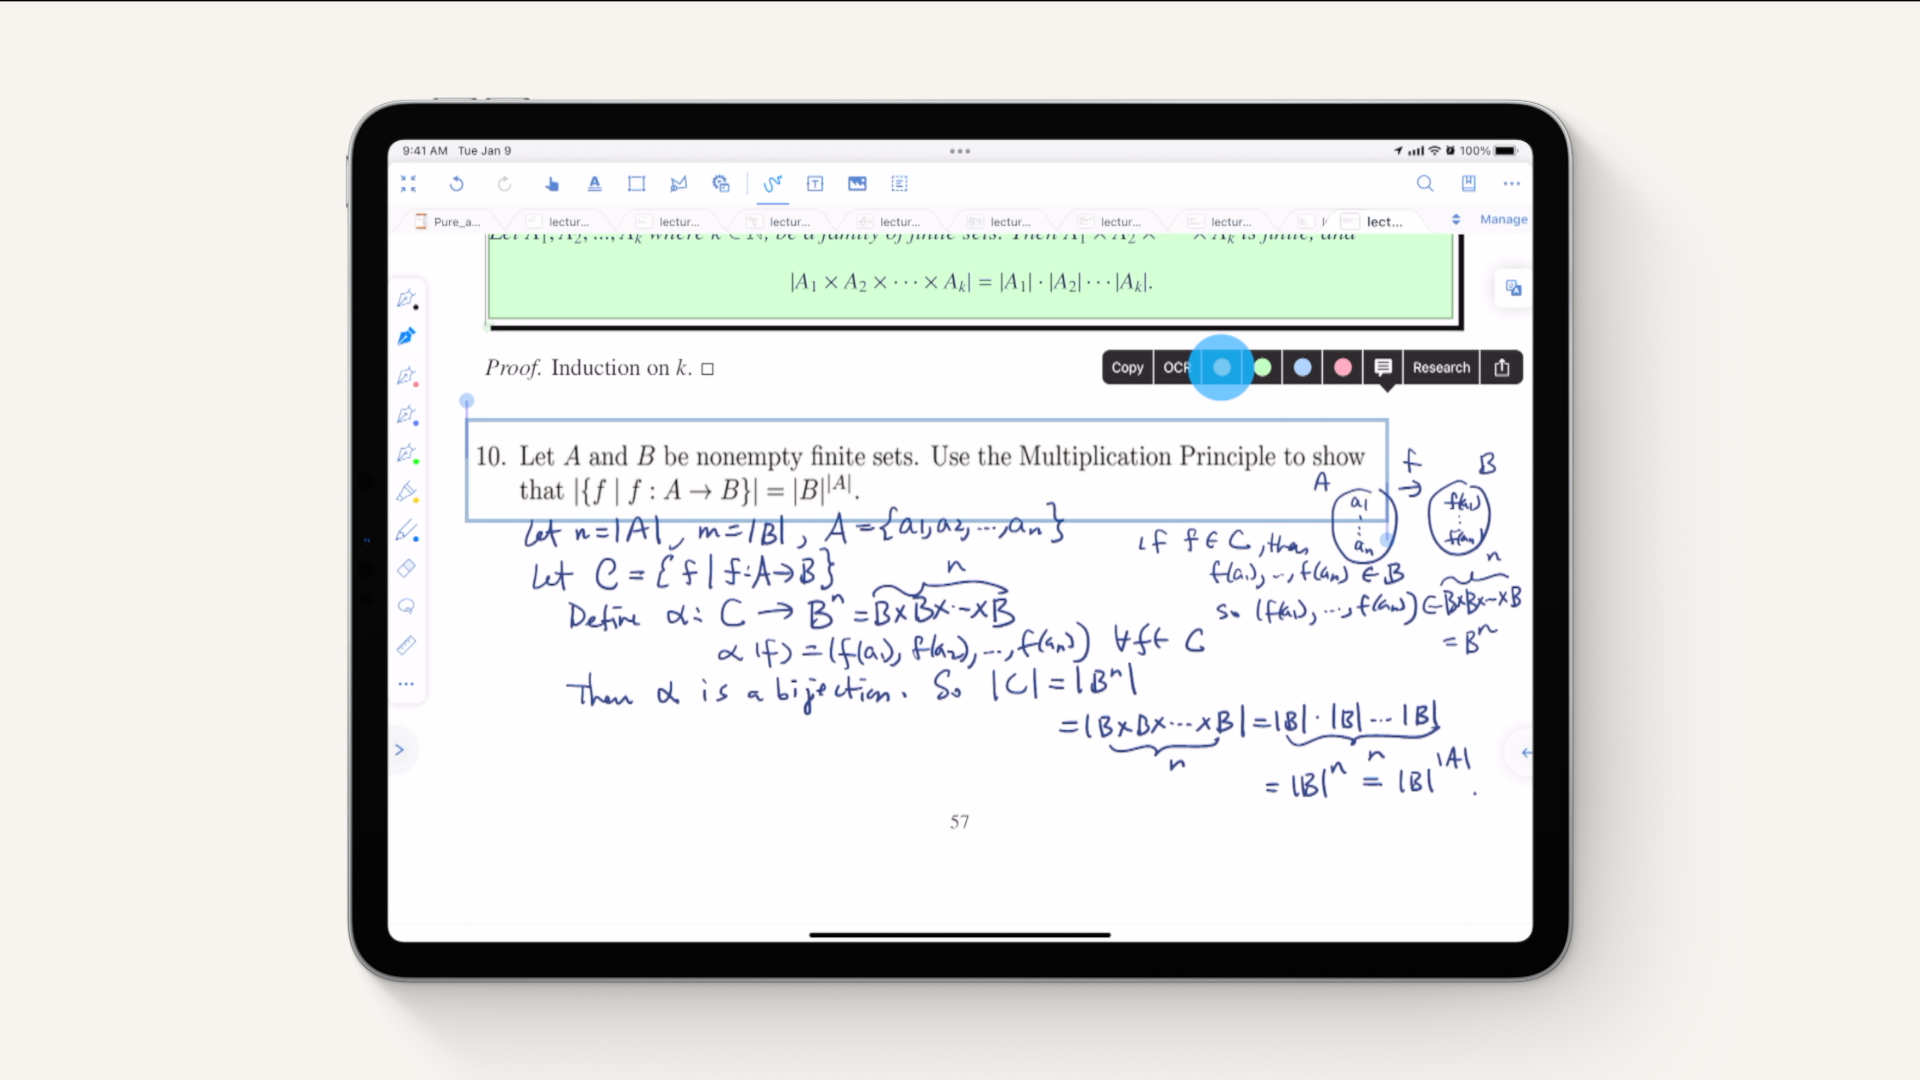 9:41 AM Tue Jan 9
100%
Pure_a...
lectur...
lectur...
lectur...
lectur...
lectur...
lectur...
lectur...
lect...
Manage
Let A₁, A₂, ..., Aₖ where k ∈ ℕ, be a family of finite sets. Then A₁ × A₂ × × Aₖ is finite, and
|A₁ × A₂ × ⋯ × Aₖ| = |A₁| · |A₂| ⋯ |Aₖ|.
Proof. Induction on k. □
Copy OCR Research
10. Let A and B be nonempty finite sets. Use the Multiplication Principle to show
that |{f | f : A → B}| = |B|^|A|.
Let n=|A|, m=|B|, A={a₁,a₂,...,aₙ}
Let C = {f | f:A→B}
n
Define α: C → Bⁿ = B×B×...×B
α(f) = (f(a₁), f(a₂), ..., f(aₙ)) ∀f∈ C
Then α is a bijection. So |C| = |Bⁿ|
= |B×B×...×B| = |B|·|B|...|B|
n n
= |B|ⁿ = |B|^|A|.
A f → B
a₁ f(a₁)
⋮ ⋮
aₙ f(aₙ)
if f∈C, then
f(a₁), ..., f(aₙ) ∈ B
n
so (f(a₁), ..., f(aₙ)) ∈ B×B×...×B
= Bⁿ
57